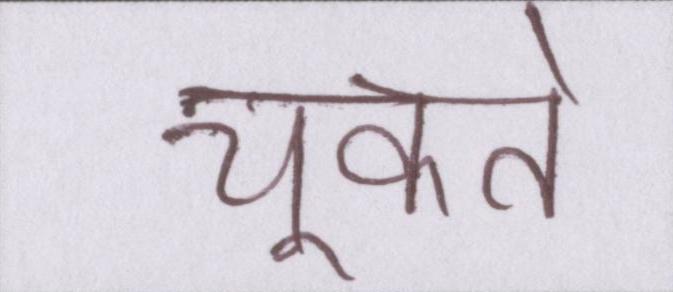 चूकते